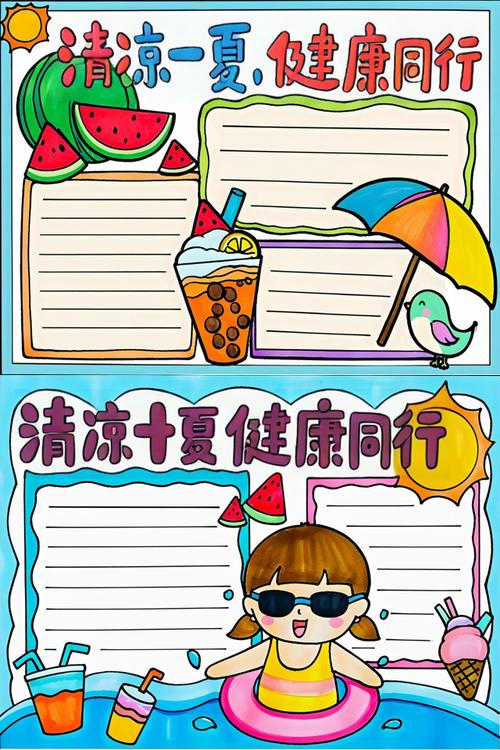 清凉一夏,健康同行
清凉十夏健康同行